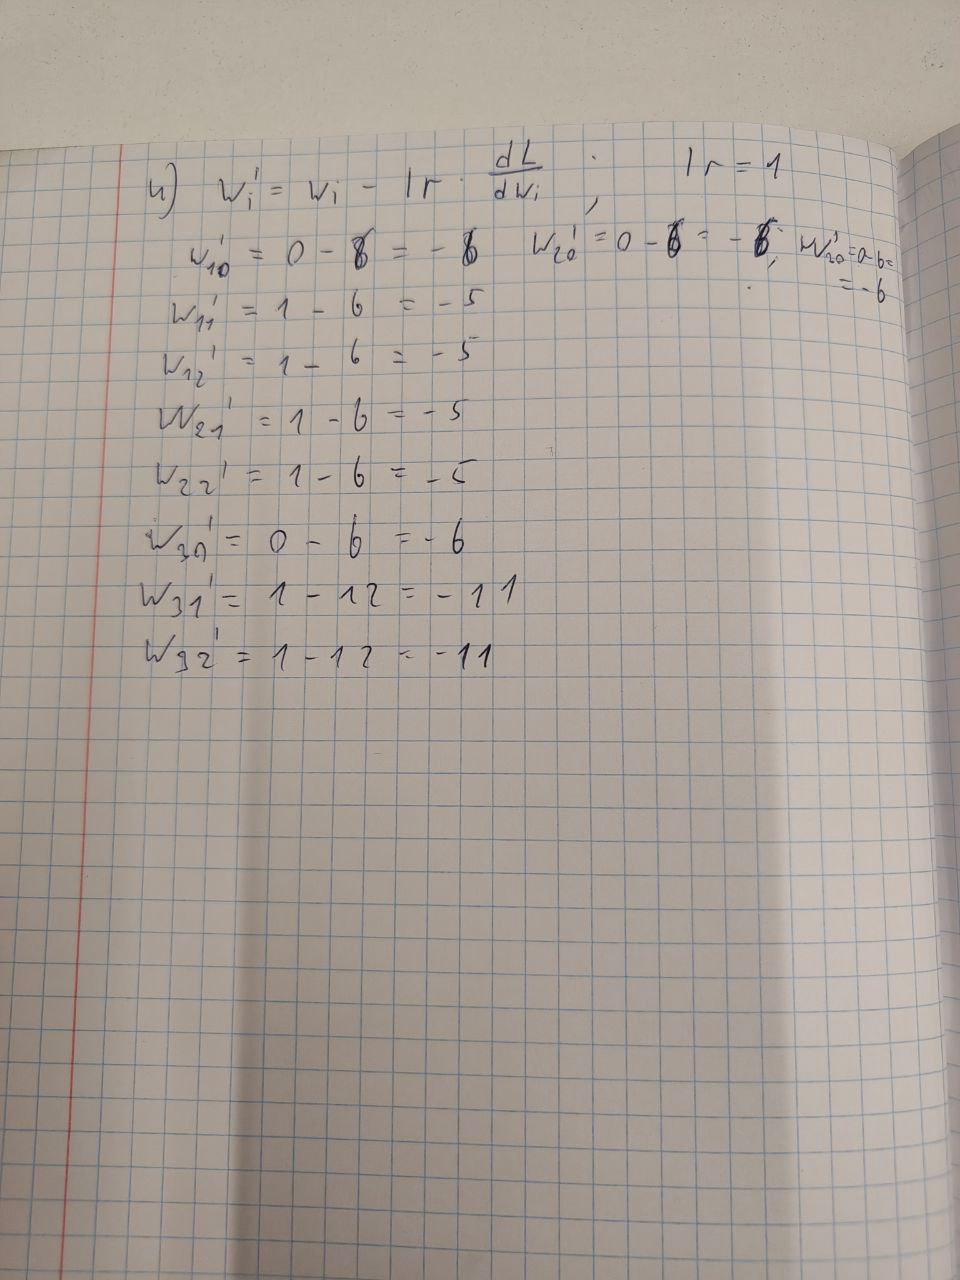 4) wi' = wi - lr · dL/dwi , lr = 1
w10' = 0 - 6 = - 6 w20' = 0 - 6 = - 6; w20' = 0 - 6 =
= - 6
w11' = 1 - 6 = - 5
w12' = 1 - 6 = - 5
w21' = 1 - 6 = - 5
w22' = 1 - 6 = - 5
w30' = 0 - 6 = - 6
w31' = 1 - 12 = - 11
w32' = 1 - 12 = - 11